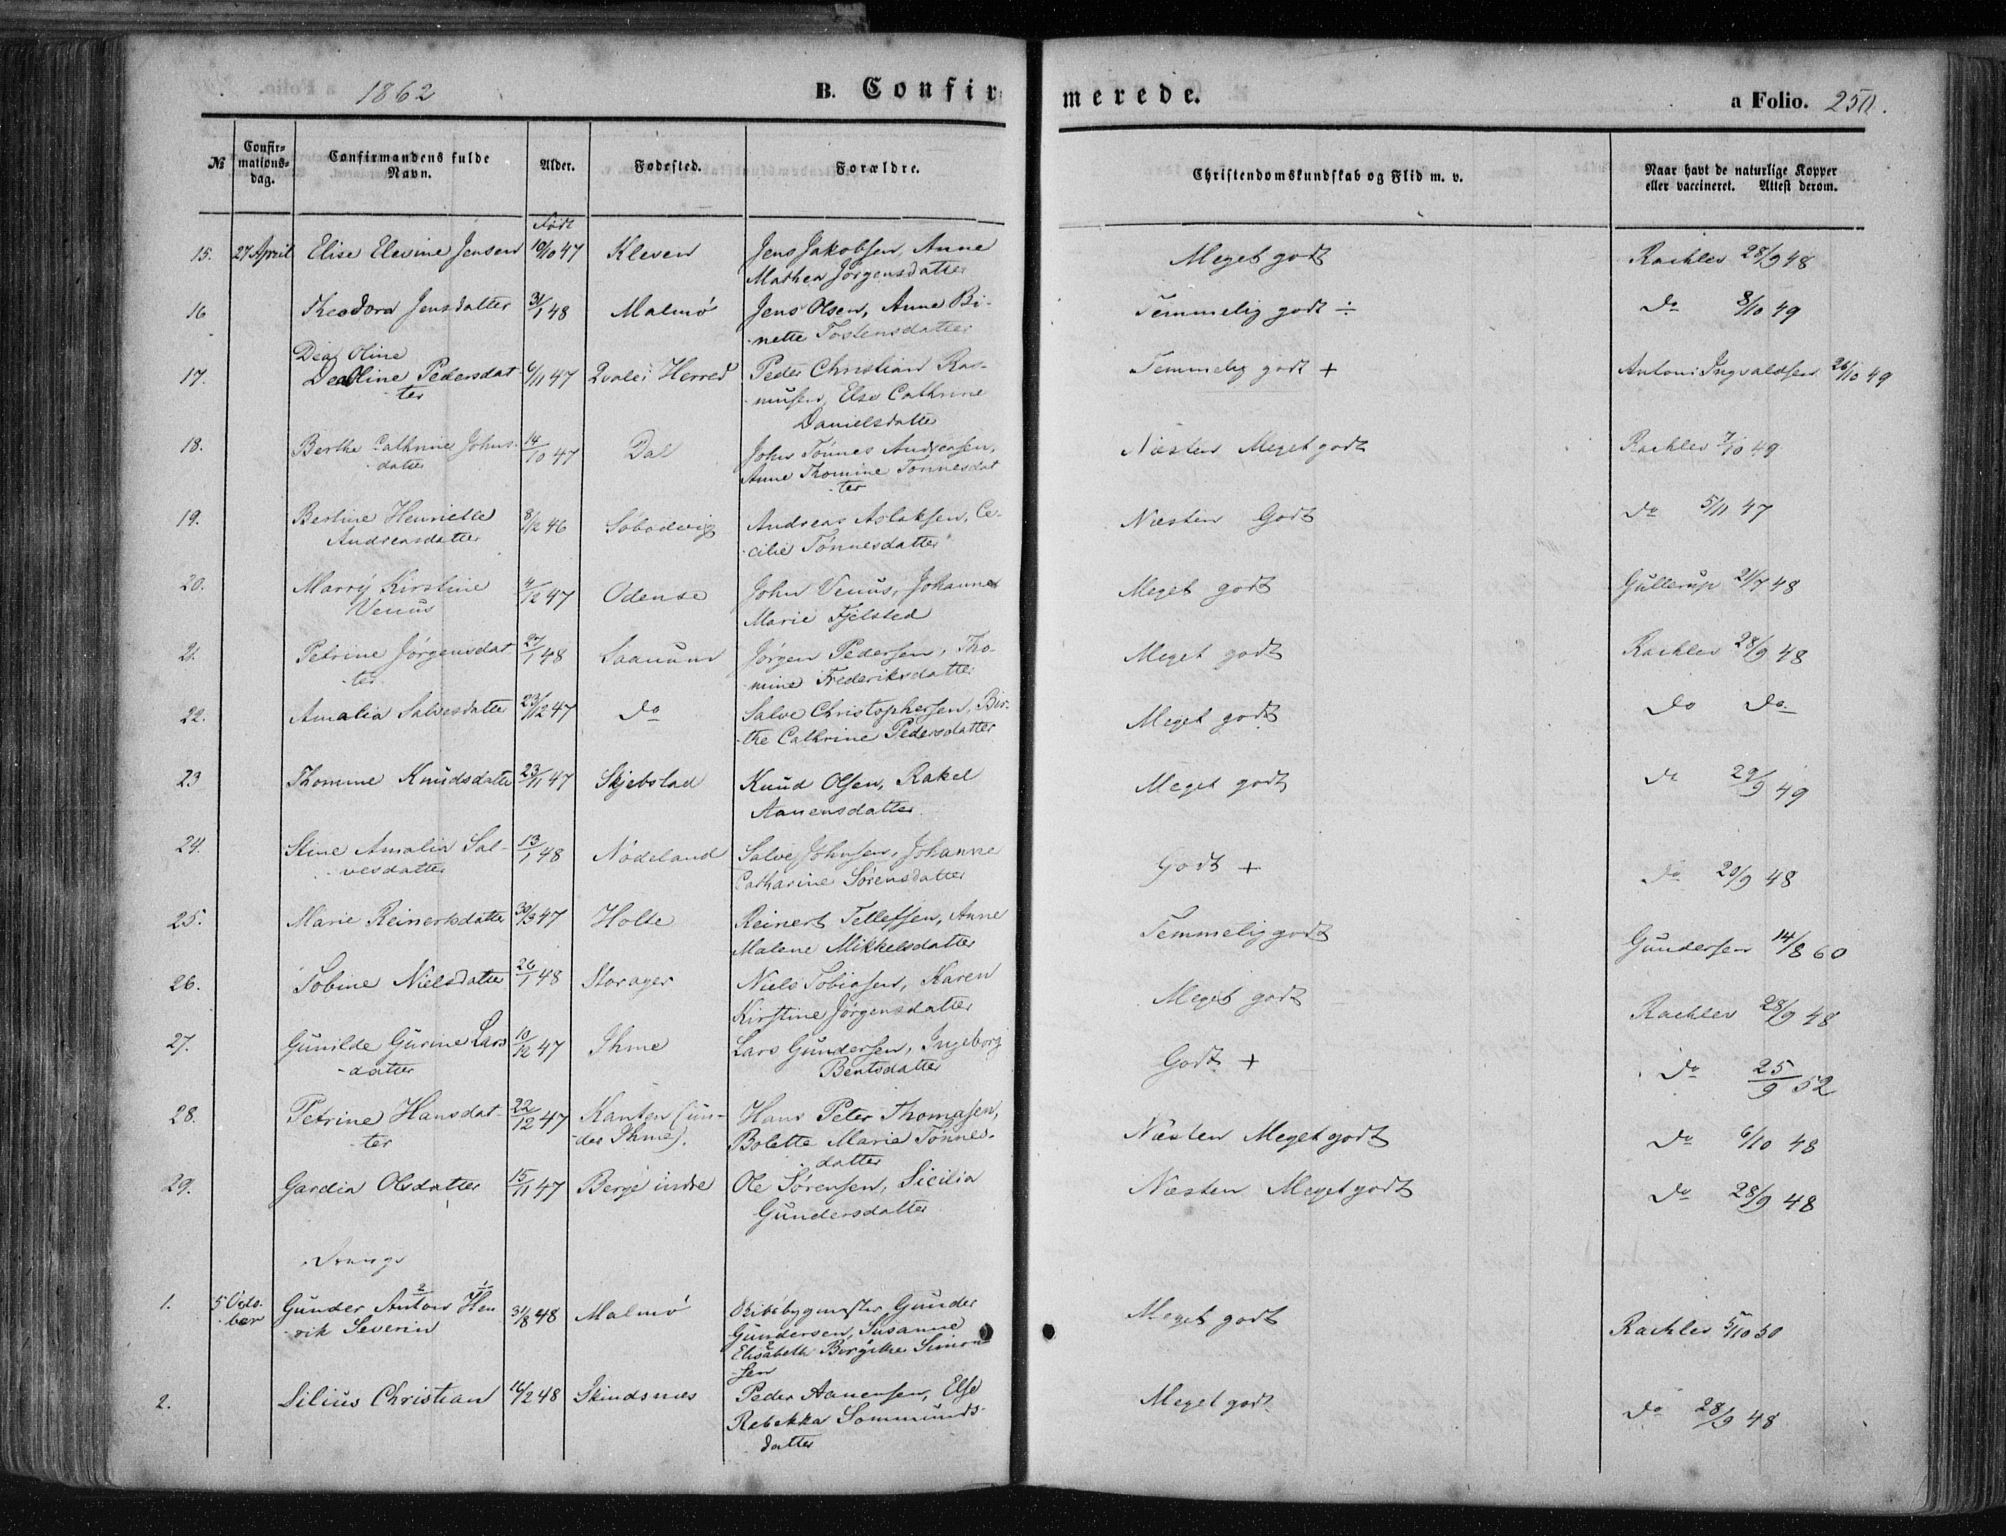 1862
B. Confirmerede.
a Folio. 250.
№
Confirmations-dag.
Confirmandens fulde Navn.
Alder.
Fødested.
Forældre.
Christendomskundskab og Flid m. v.
Naar havt de naturlige Kopper eller vaccineret. Attest derom.
Født
15. 27 April Elise Elevine Jensen 19/10 47 Kleven Jens Jakobsen, Anne Meget godt Rachlev 28/9 48
Mathea Jørgensdatter
16 Theodora Jensdatter 31/1 48 Malmø Jens Olsen, Anne Bi- Temmelig godt ÷ Do 8/10 49
nette Tostensdatter
Dea Oline
17. Pedersdat- 6/11 47 Herred Peder Christian Ras- Temmelig godt + Antoni Ingvaldsen 26/10 49
ter -musen, Else Cathrine
Danielsdatter
18. Berthe Cathrine Johns- 14/10 47 Dal John Tønnes Andreasen, Næsten Meget godt Rachlev 7/10 49
-datter Anne Thomine Tønnesdat
-ter
19. Bertine Henriette 8/12 46 Andreas Aslaksen, Ce- Næsten Godt Do 5/11 47
Andreasdatter -cilie Tønnesdatter
20. Marry Kirstine 4/12 47 Odense John Venus, Johanne Meget godt Gullerup 21/7 48
Venus Marie Fjelsted
21. Petrine Jørgensdat 27/1 48 Saanum Jørgen Pedersen, Tho- Meget godt Rachlev 28/9 48
-ter -mine Frederiksdatter
22. Amalia Salvesdatter 23/12 47 Do Salve Christophersen, Bir- Meget godt Do Do
-the Cathrine Pedersdatter
23 Thomine Knudsdatter 23/11 47 Skjebstad Knud Olsen, Rakel Meget godt Do 29/9 49
Aanensdatter
24. Stine Amalia Sal- 13/1 48 Nødeland Salve Johnsen, Johanne Godt + Do 20/9 48
vesdatter Catharine Sørensdatter
25. Marie Reinertsdatter 30/3 47 Holte Reinert Tellefsen, Anne Temmelig godt Gundersen 14/8 60
Malene Mikkelsdatter
26. Tobine Nielsdatter 26/1 48 Storager Niels Tobiasen, Karen Meget godt Rachlev 28/9 48
Kirstine Jørgensdatter
27. Gunilde Gurine Lars 10/12 47 Ihme Lars Gundersen, Ingeborg Godt + Do 25/9 52
-datter Bentsdatter
28. Petrine Hansdat- 22/12 47 Kanten (un- Hans Peter Thomasen, Næsten Meget godt Do 6/10 48
-ter -der Ihme). Bolette Marie Tønnes-
datter
29. Gardia Olsdatter 15/11 47 Berge indre Ole Sørensen, Sicilia Næsten Meget godt Do 28/9 48
Gundersdatter
Drenge
1. 5 Octo- Gunder Anton Hen 31/8 48 Malmø Skibsbygmester Gunder Meget godt Rachlev 5/10 50
-ber rik Severin Gundersen, Susanne
Elisabeth Birgitte Simon
-sen
2. Silius Christian 16/2 48 Skindsnes Peder Aanensen, Else Meget godt Do 28/9 48
Rebekka Sommunds-
datter